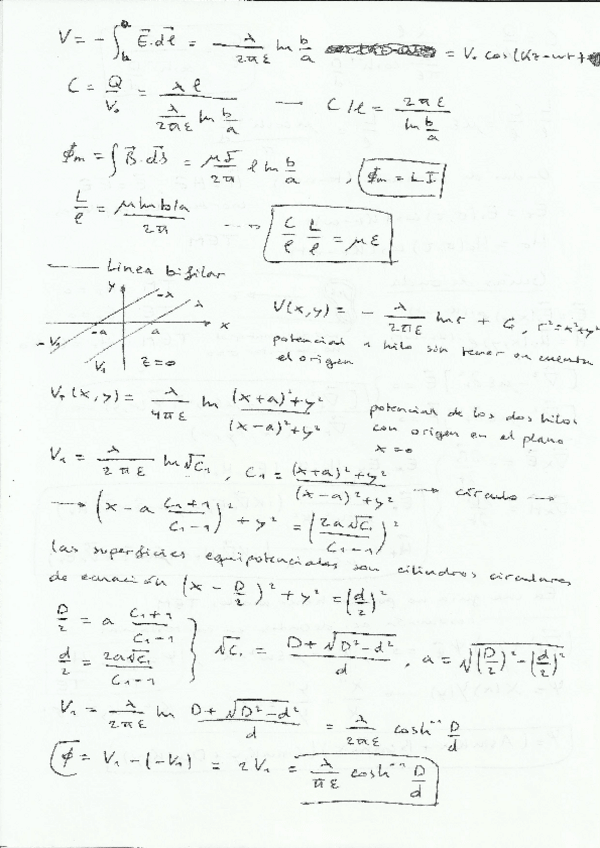 V = - ∫_b^a E⃗.dℓ⃗ = - λ/2πε ln b/a = V₀ cos(Kz-wt+
C = Q/V₀ = λℓ / (λ/2πε ln b/a) — C/ℓ = 2πε / ln b/a
ϕm = ∫ B⃗.ds⃗ = μI/2π ℓ ln b/a , ϕm = L I
L/ℓ = μ ln b/a / 2π --→ C/ℓ L/ℓ = με
—— Línea bifilar
y -λ λ
V(x,y) = - λ/2πε ln r + C, r²=x²+y²
-a a x
potencial 1 hilo sin tener en cuenta
el origen
-V₁ V₁ z=0
V₀(x,y) = λ/4πε ln (x+a)²+y² / (x-a)²+y²
potencial de los dos hilos
con origen en el plano
x=0
V₁ = λ/2πε ln √C₁ , C₁ = (x+a)²+y² / (x-a)²+y² → círculo →
→ (x - a C₁+1/C₁-1)² + y² = (2a√C₁/C₁-1)²
las superficies equipotenciales son cilindros circulares
de ecuación (x - D/2)² + y² = (d/2)²
D/2 = a C₁+1/C₁-1
d/2 = 2a√C₁/C₁-1 } √C₁ = D+√(D²-d²) / d , a = √((D/2)²-(d/2)²)
V₁ = λ/2πε ln D+√(D²-d²) / d = λ/2πε cosh⁻¹ D/d
ϕ = V₁-(-V₁) = 2V₁ = λ/πε cosh⁻¹ D/d